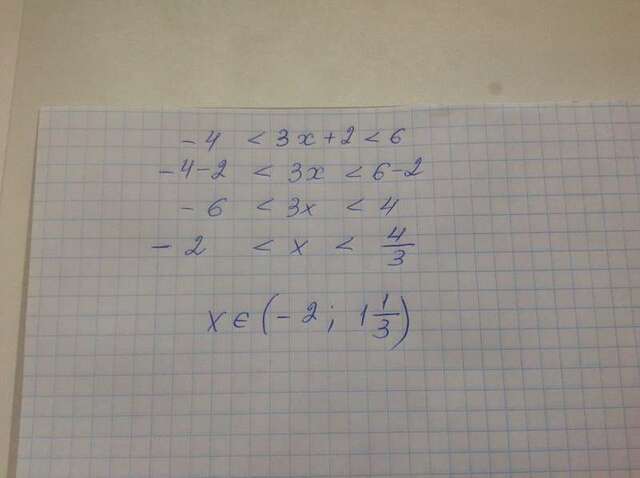 -4 < 3x + 2 < 6
-4-2 < 3x < 6-2
-6 < 3x < 4
-2 < x < 4/3
x ∈ (-2; 1 1/3)